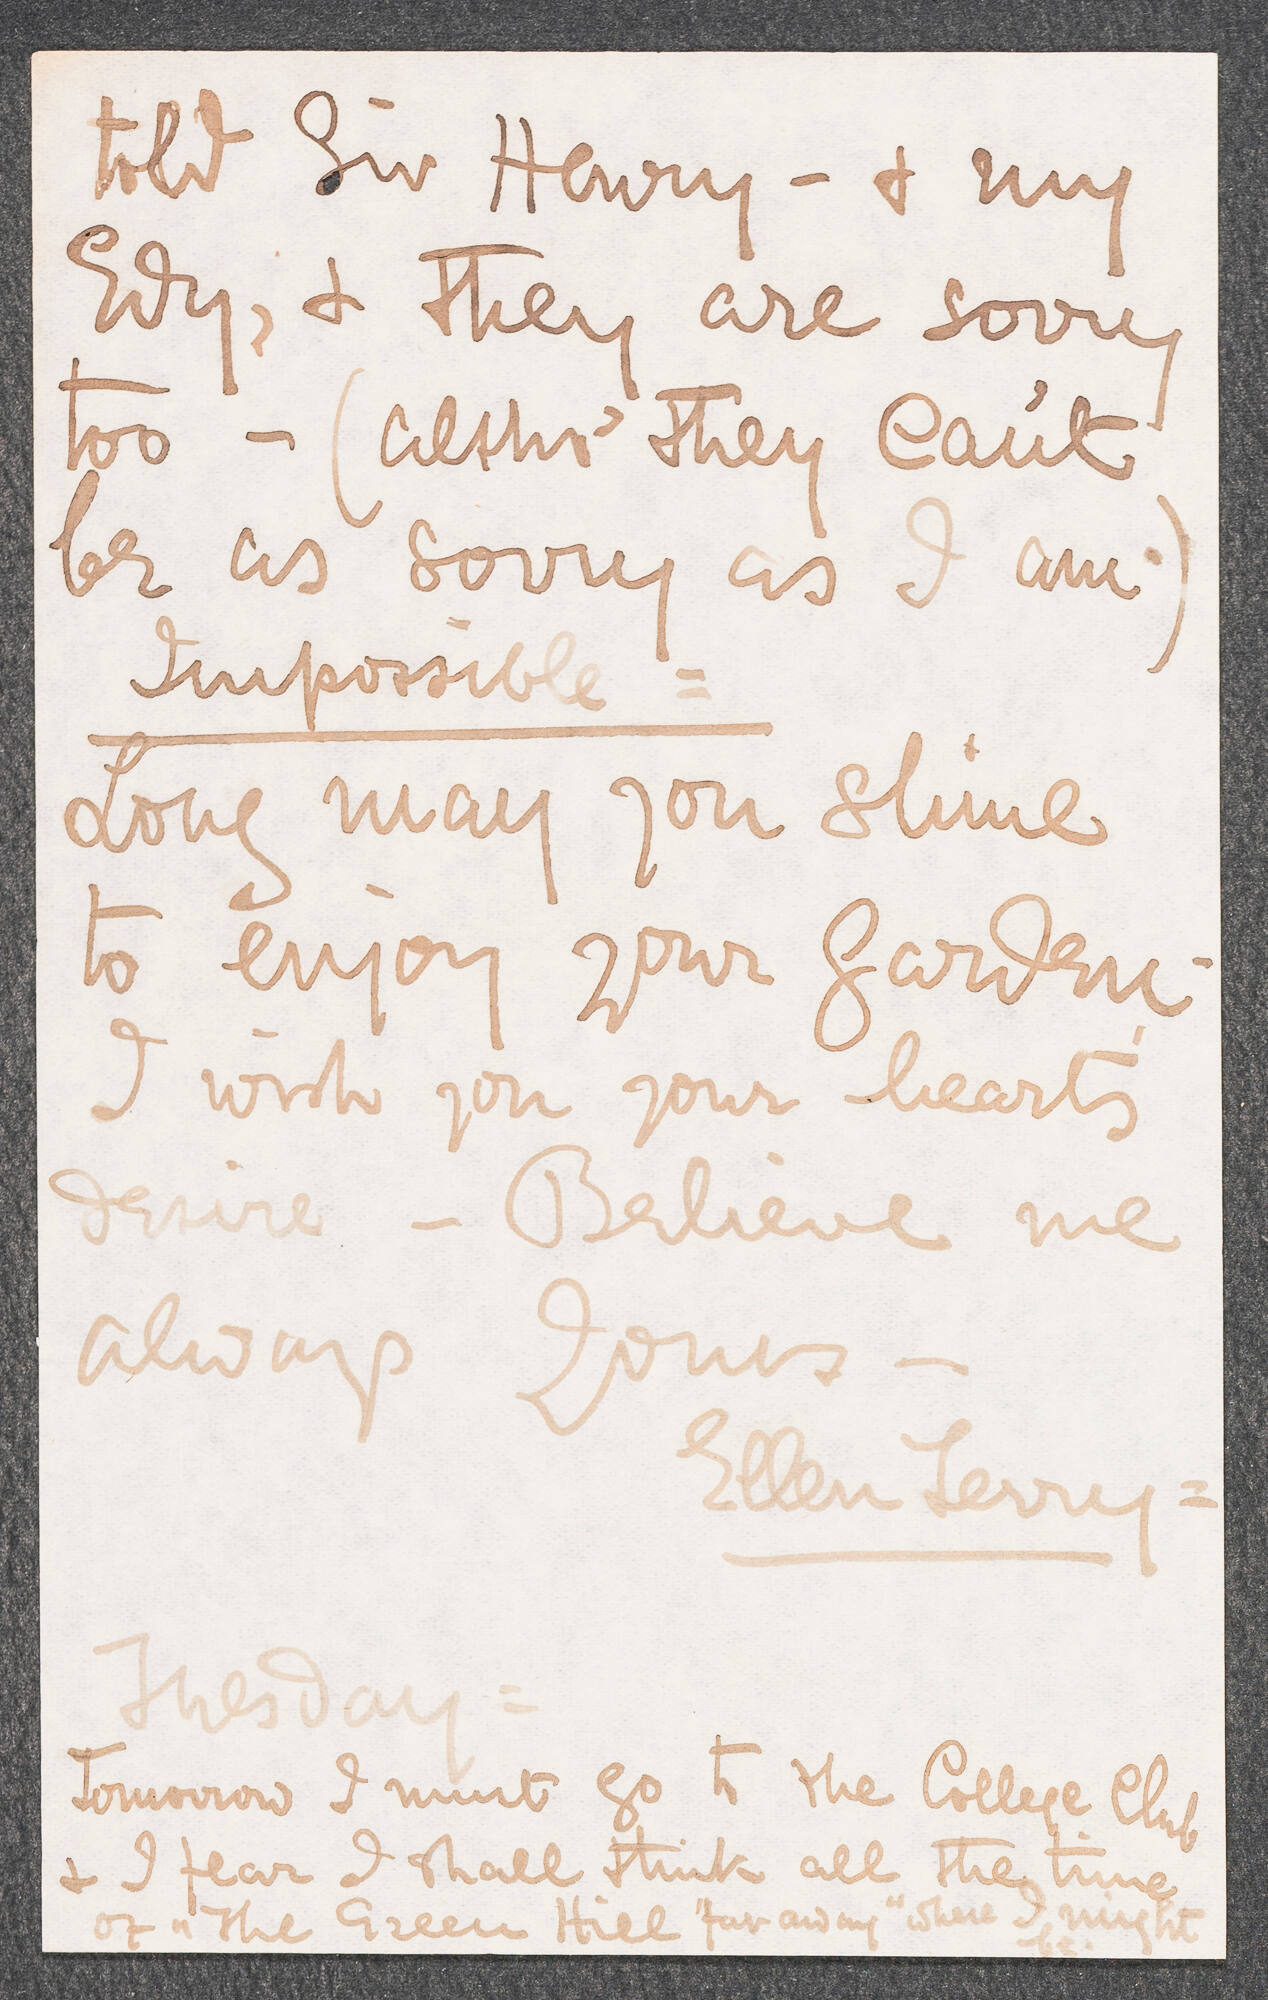 told Sir Henry - & my
Edy, & they are sorry
too - (altho' they can't
be as sorry as I am.)
Impossible =
Long may you shine
to enjoy your garden -
I wish you your heart's
desire - Believe me
always Yours -
Ellen Terry =
Tuesday =
Tomorrow I must go to the College Club
& I fear I shall think all the time
of "The Green Hill "far away" where I might
be.